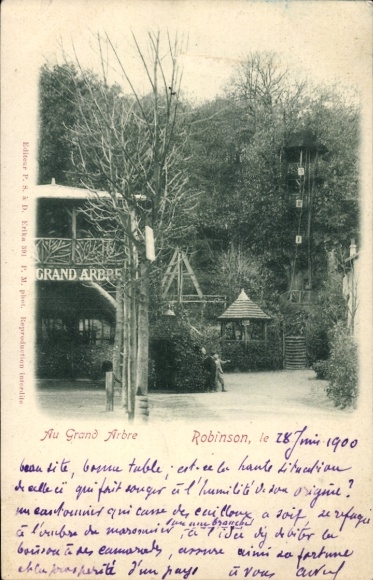 GRAND ARBRE
Editeur P. S. à D. Erika 391 P. M, phot. Reproduction interdite
Au Grand Arbre Robinson, le 28 Juin 1900
beau site, bonne table, est-ce la haute situation
de celle ci qui fait songer à l'humilité de son origine?
un cantonnier qui casse des cailloux a soif se refugie
sur une branche
à l'ombre du maronnier, a l'idée d'y débiter la
boisson à ses camarades, assure ainsi sa fortune
et la prospérité d'un pays à vous